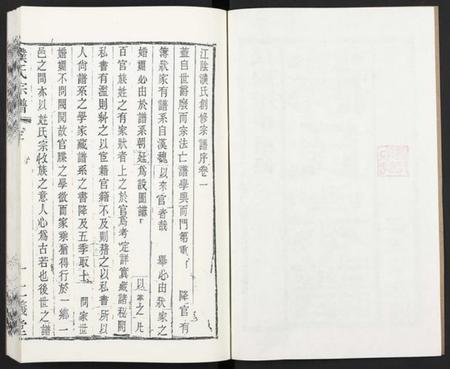 江陰濮氏創修宗譜序卷一
蓋自世爵廢而宗法亡譜學興而門第重 降官有
簿狀家有譜系自漢魏以來官者哉 舉必由於狀家之
婚姻必由於譜系朝廷為設圖譜 以掌之凡
百官族姓之有家狀者上之於官為考定詳實藏諸秘閣
私書有濫則糾之以官籍官籍不及則稽之以私書所以
人尚譜系之學家藏譜系之書降及五季取士 問家世
婚姻不問閥閱故官牒之學散而家乘猶得行於一鄉一
邑之間亦以姓氏宗收族之意人心為古若也後世之譜
濮氏宗譜